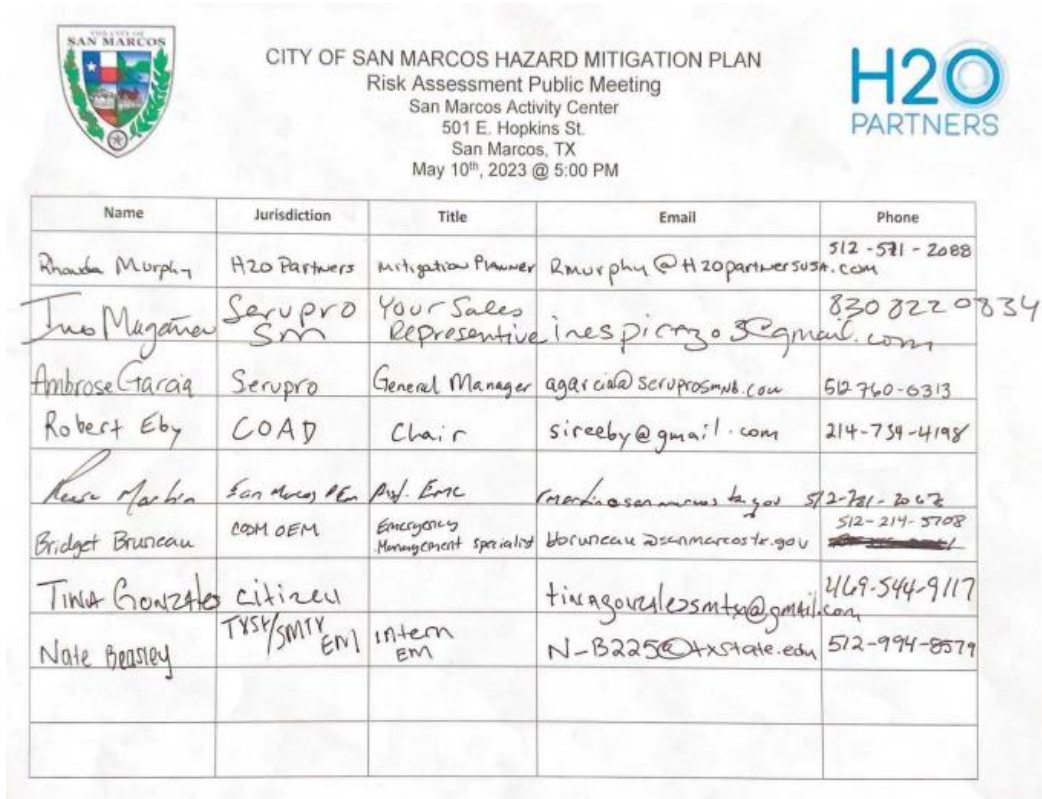 THE CITY OF
SAN MARCOS
CITY OF SAN MARCOS HAZARD MITIGATION PLAN
Risk Assessment Public Meeting
San Marcos Activity Center
501 E. Hopkins St.
San Marcos, TX
May 10th, 2023 @ 5:00 PM
H2O
PARTNERS
Name Jurisdiction Title Email Phone
Rhonda Murphy H2O Partners Mitigation Planner Rmurphy@H2OpartnersUSA.com 512-571-2088
Servpro SM Your Sales Representive 830 822 0834
Ambrose Garcia Servpro General Manager agarcia@servprosmnb.com 512 760-6313
Robert Eby COAD Chair sireeby@gmail.com 214-734-4198
Martin San Marcos EMC
Bridget Bruneau COSM OEM Emergency Management specialist bbruneau@sanmarcostx.gov 512-214-5708
Tina Gonzales citizen tinagonzalessmtx@gmail.com 469-544-9117
Nate Beasley TXST/SMTX EM intern EM N-B225@txstate.edu 512-994-8579